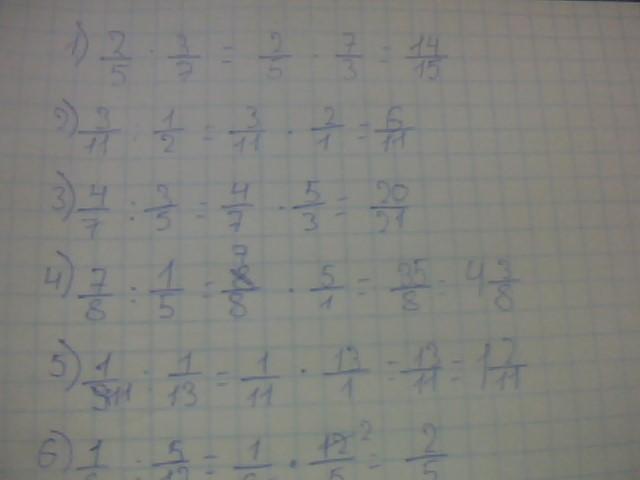 1) 2/5 : 3/7 = 2/5 · 7/3 = 14/15
2) 3/11 : 1/2 = 3/11 · 2/1 = 6/11
3) 4/7 : 3/5 = 4/7 · 5/3 = 20/21
4) 7/8 : 1/5 = 7/8 · 5/1 = 35/8 = 4 3/8
5) 1/11 : 1/13 = 1/11 · 13/1 = 13/11 = 1 2/11
6) 1/6 : 5/12 = 1/6 · 12/5 = 2/5